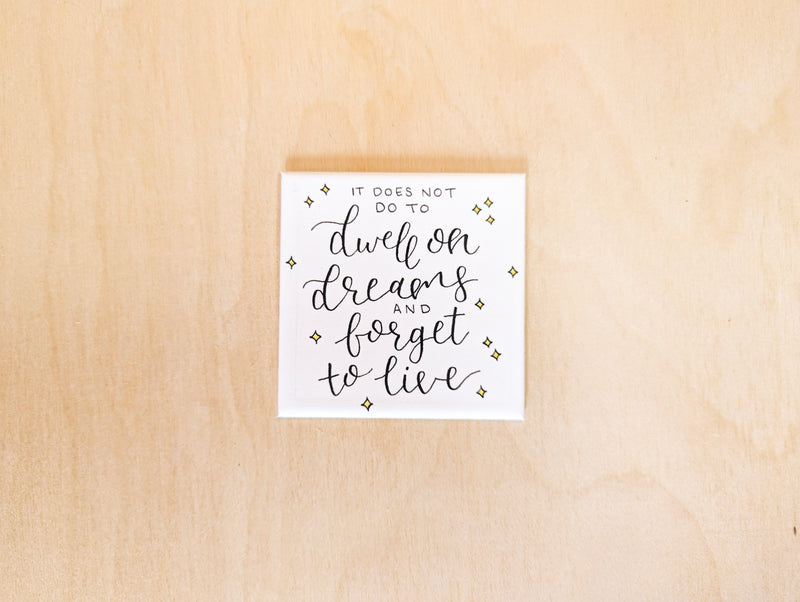 IT DOES NOT
DO TO
dwell on
dreams
AND
forget
to live